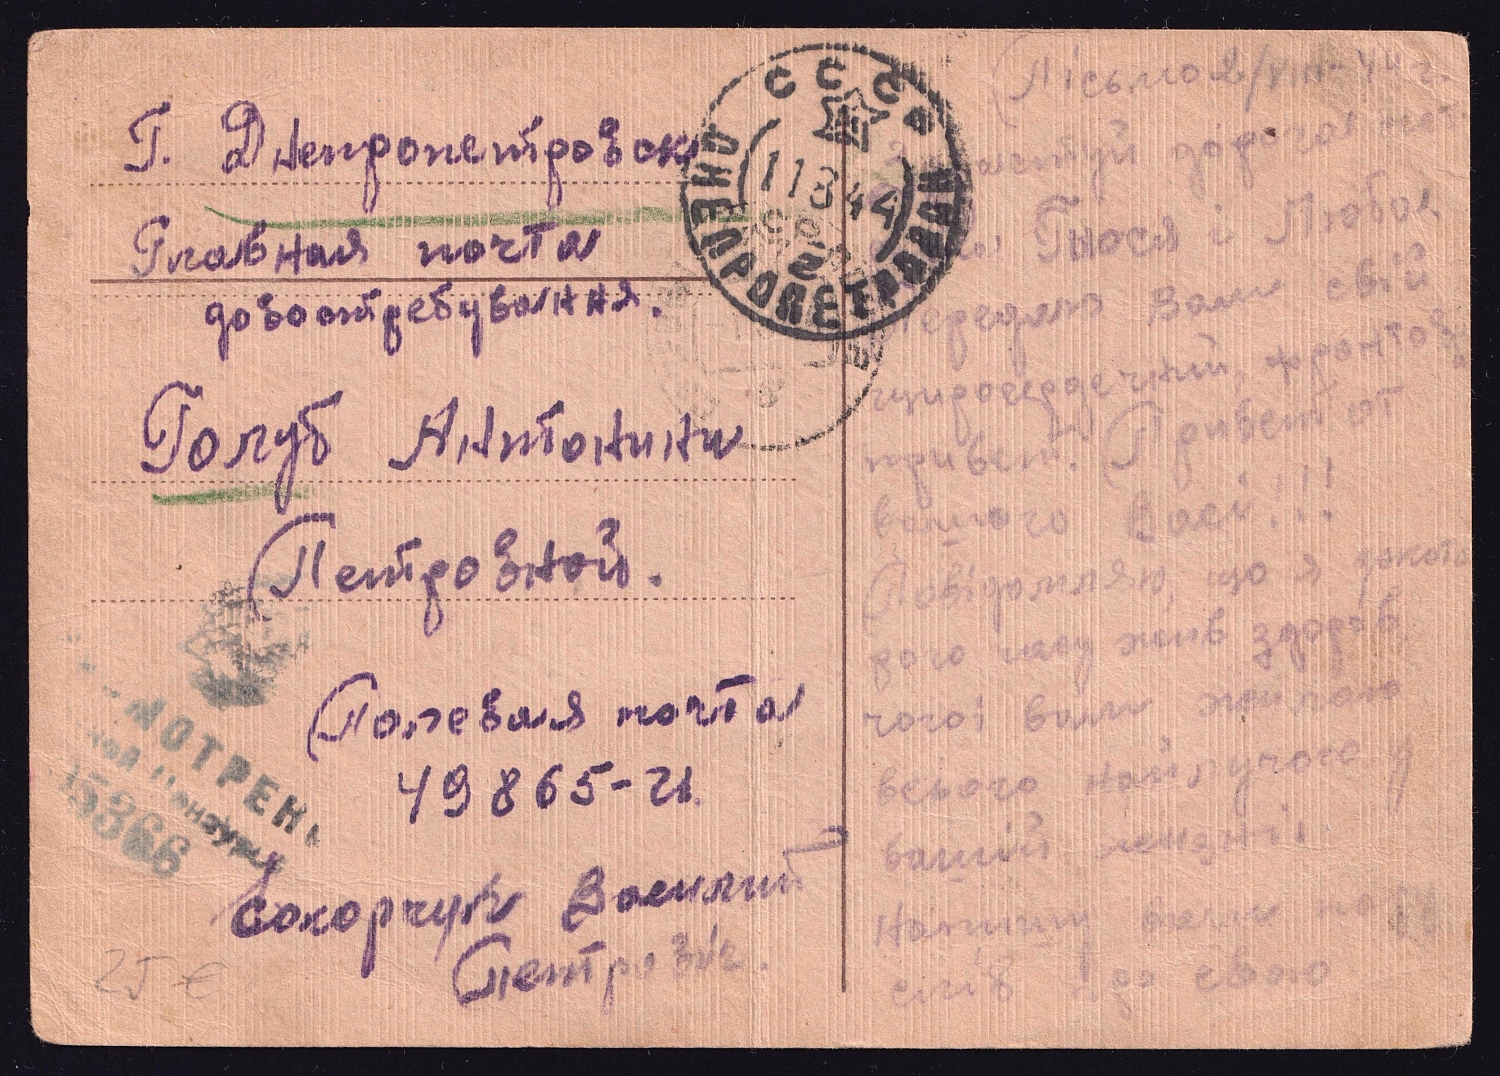 Г. Днепропетровск
Главная почта
довостребування.
Голуб Антонини
Петровной.
Полевая почта
49865-И.
Сокорчук Василий
Петровіч.
СССР
ДНЕПРОПЕТР
11 8 44
2
МОТРЕН
15366
25 €
Пісьмо 2/VIII-44 г.
дорога
Тнося і Любов
Передаю Вам свій
щиросердечний, фронтов
привет. Привет от
вашого Васі!!!
Повідомляю, що я
часу жив здоров,
чого і вам желаю
всього найлучого у
вашій жизні.
Напишу вам
слів про свою